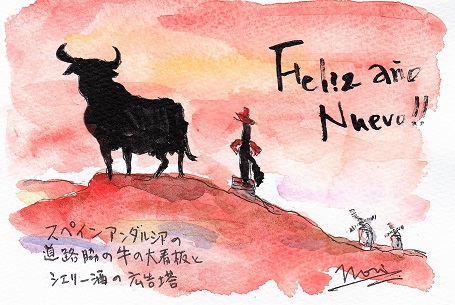 Feliz año
Nuevo!!
スペインアンダルシアの
道路脇の牛の大看板と
シェリー酒の広告塔
Nori